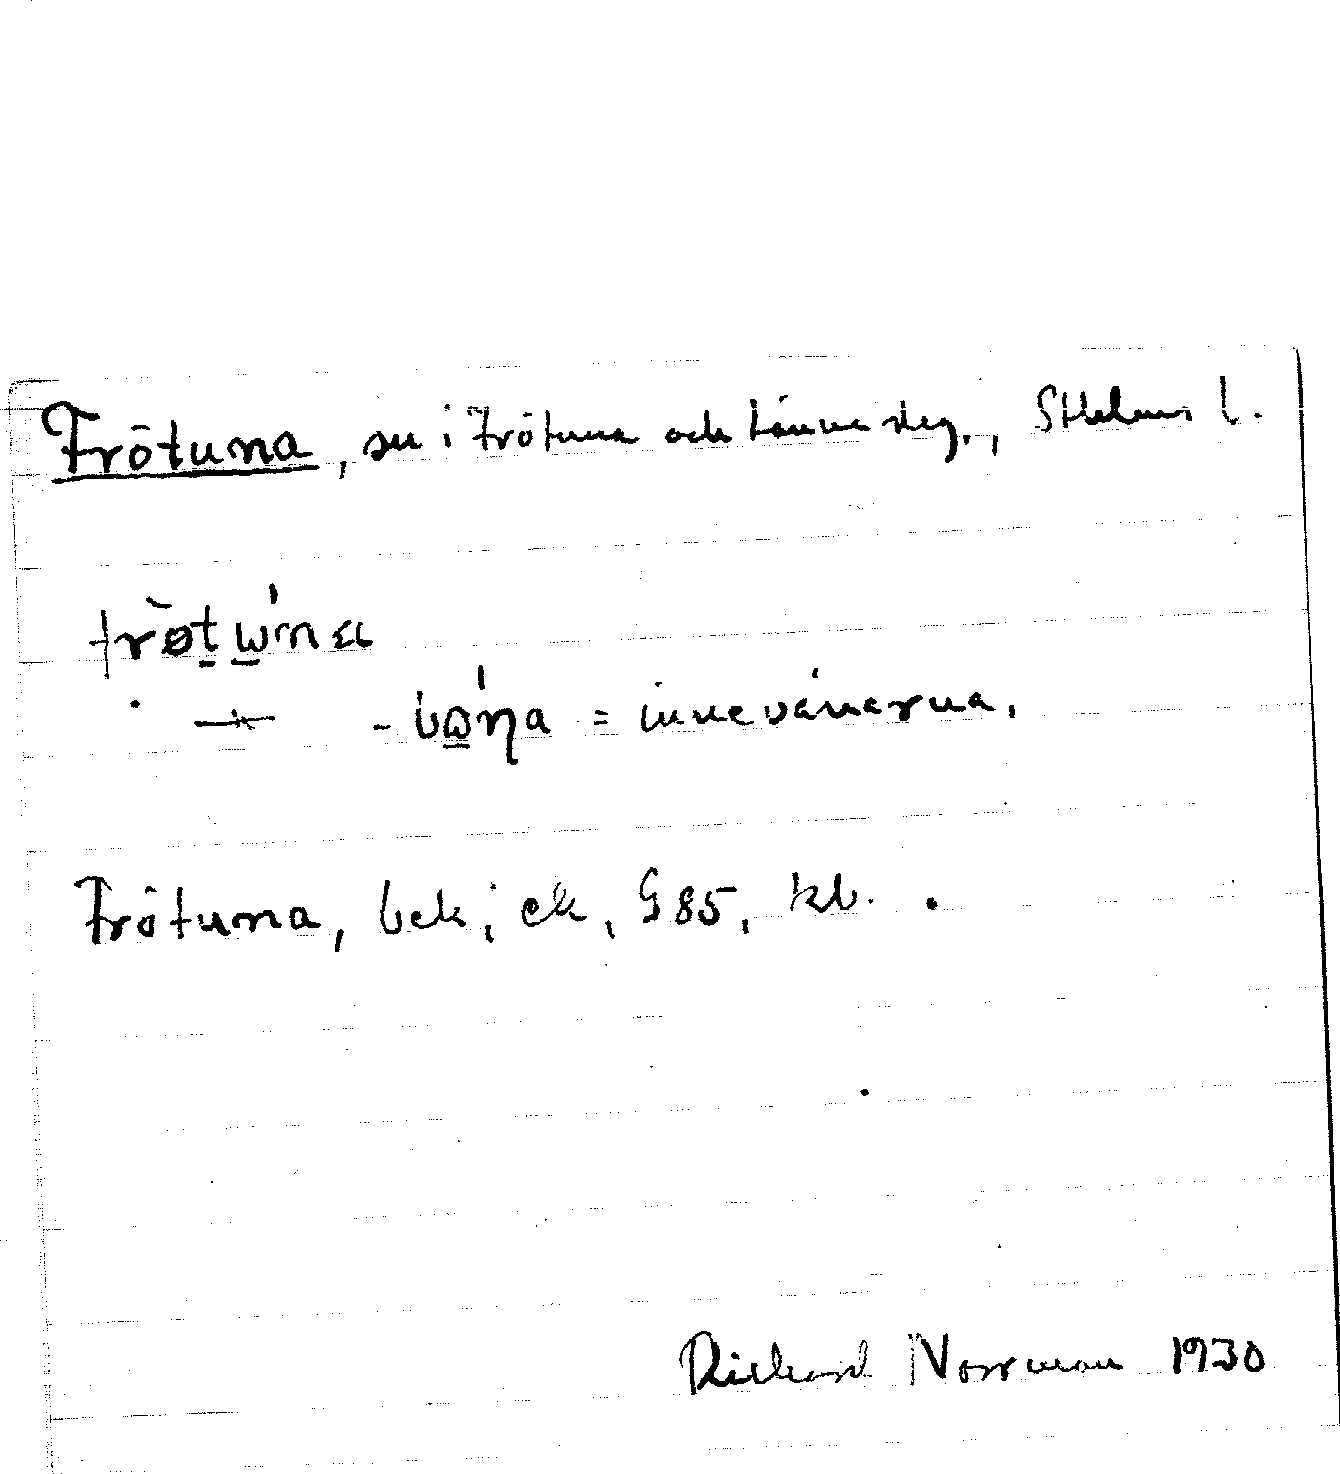 Frötuna, sn i Frötuna och Länna skg., Sthlms l.
frø̀tω'na
- bω'ɳa = innevånarna.
Frötuna, bek; ek, G 85, kb.
Rickard Norrman 1930